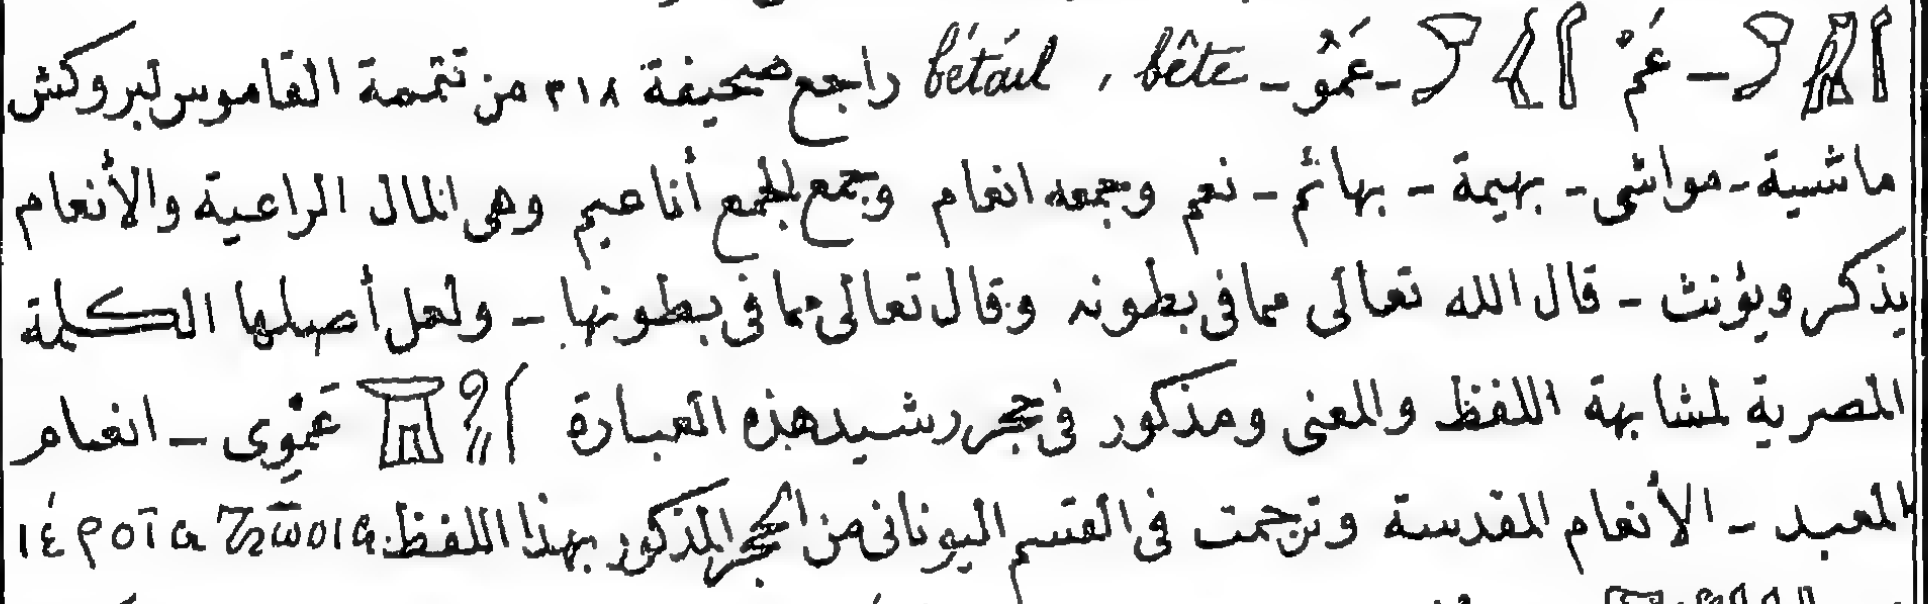 عَمْ - عَمُو - bétail , bête راجع صحيفة ٣١٨ من تتممة القاموس لبروكش
ماشية - مواشى - بهيمة - بهائم - نعم وجمعه انعام وجمع الجمع أناعيم وهى المال الراعية والأنعام
يذكر ويؤنث - قال الله تعالى مما فى بطونه وقال تعالى مما فى بطونها - ولعل أصلها الكلمة
المصرية لمشابهة اللفظ والمعنى ومذكور فى حجر رشيد هذه العبارة عَمْوِى - انعام
المعبد - الأنعام المقدسة وترجمت فى القسم اليونانى من الحجر المذكور بهذا اللفظ